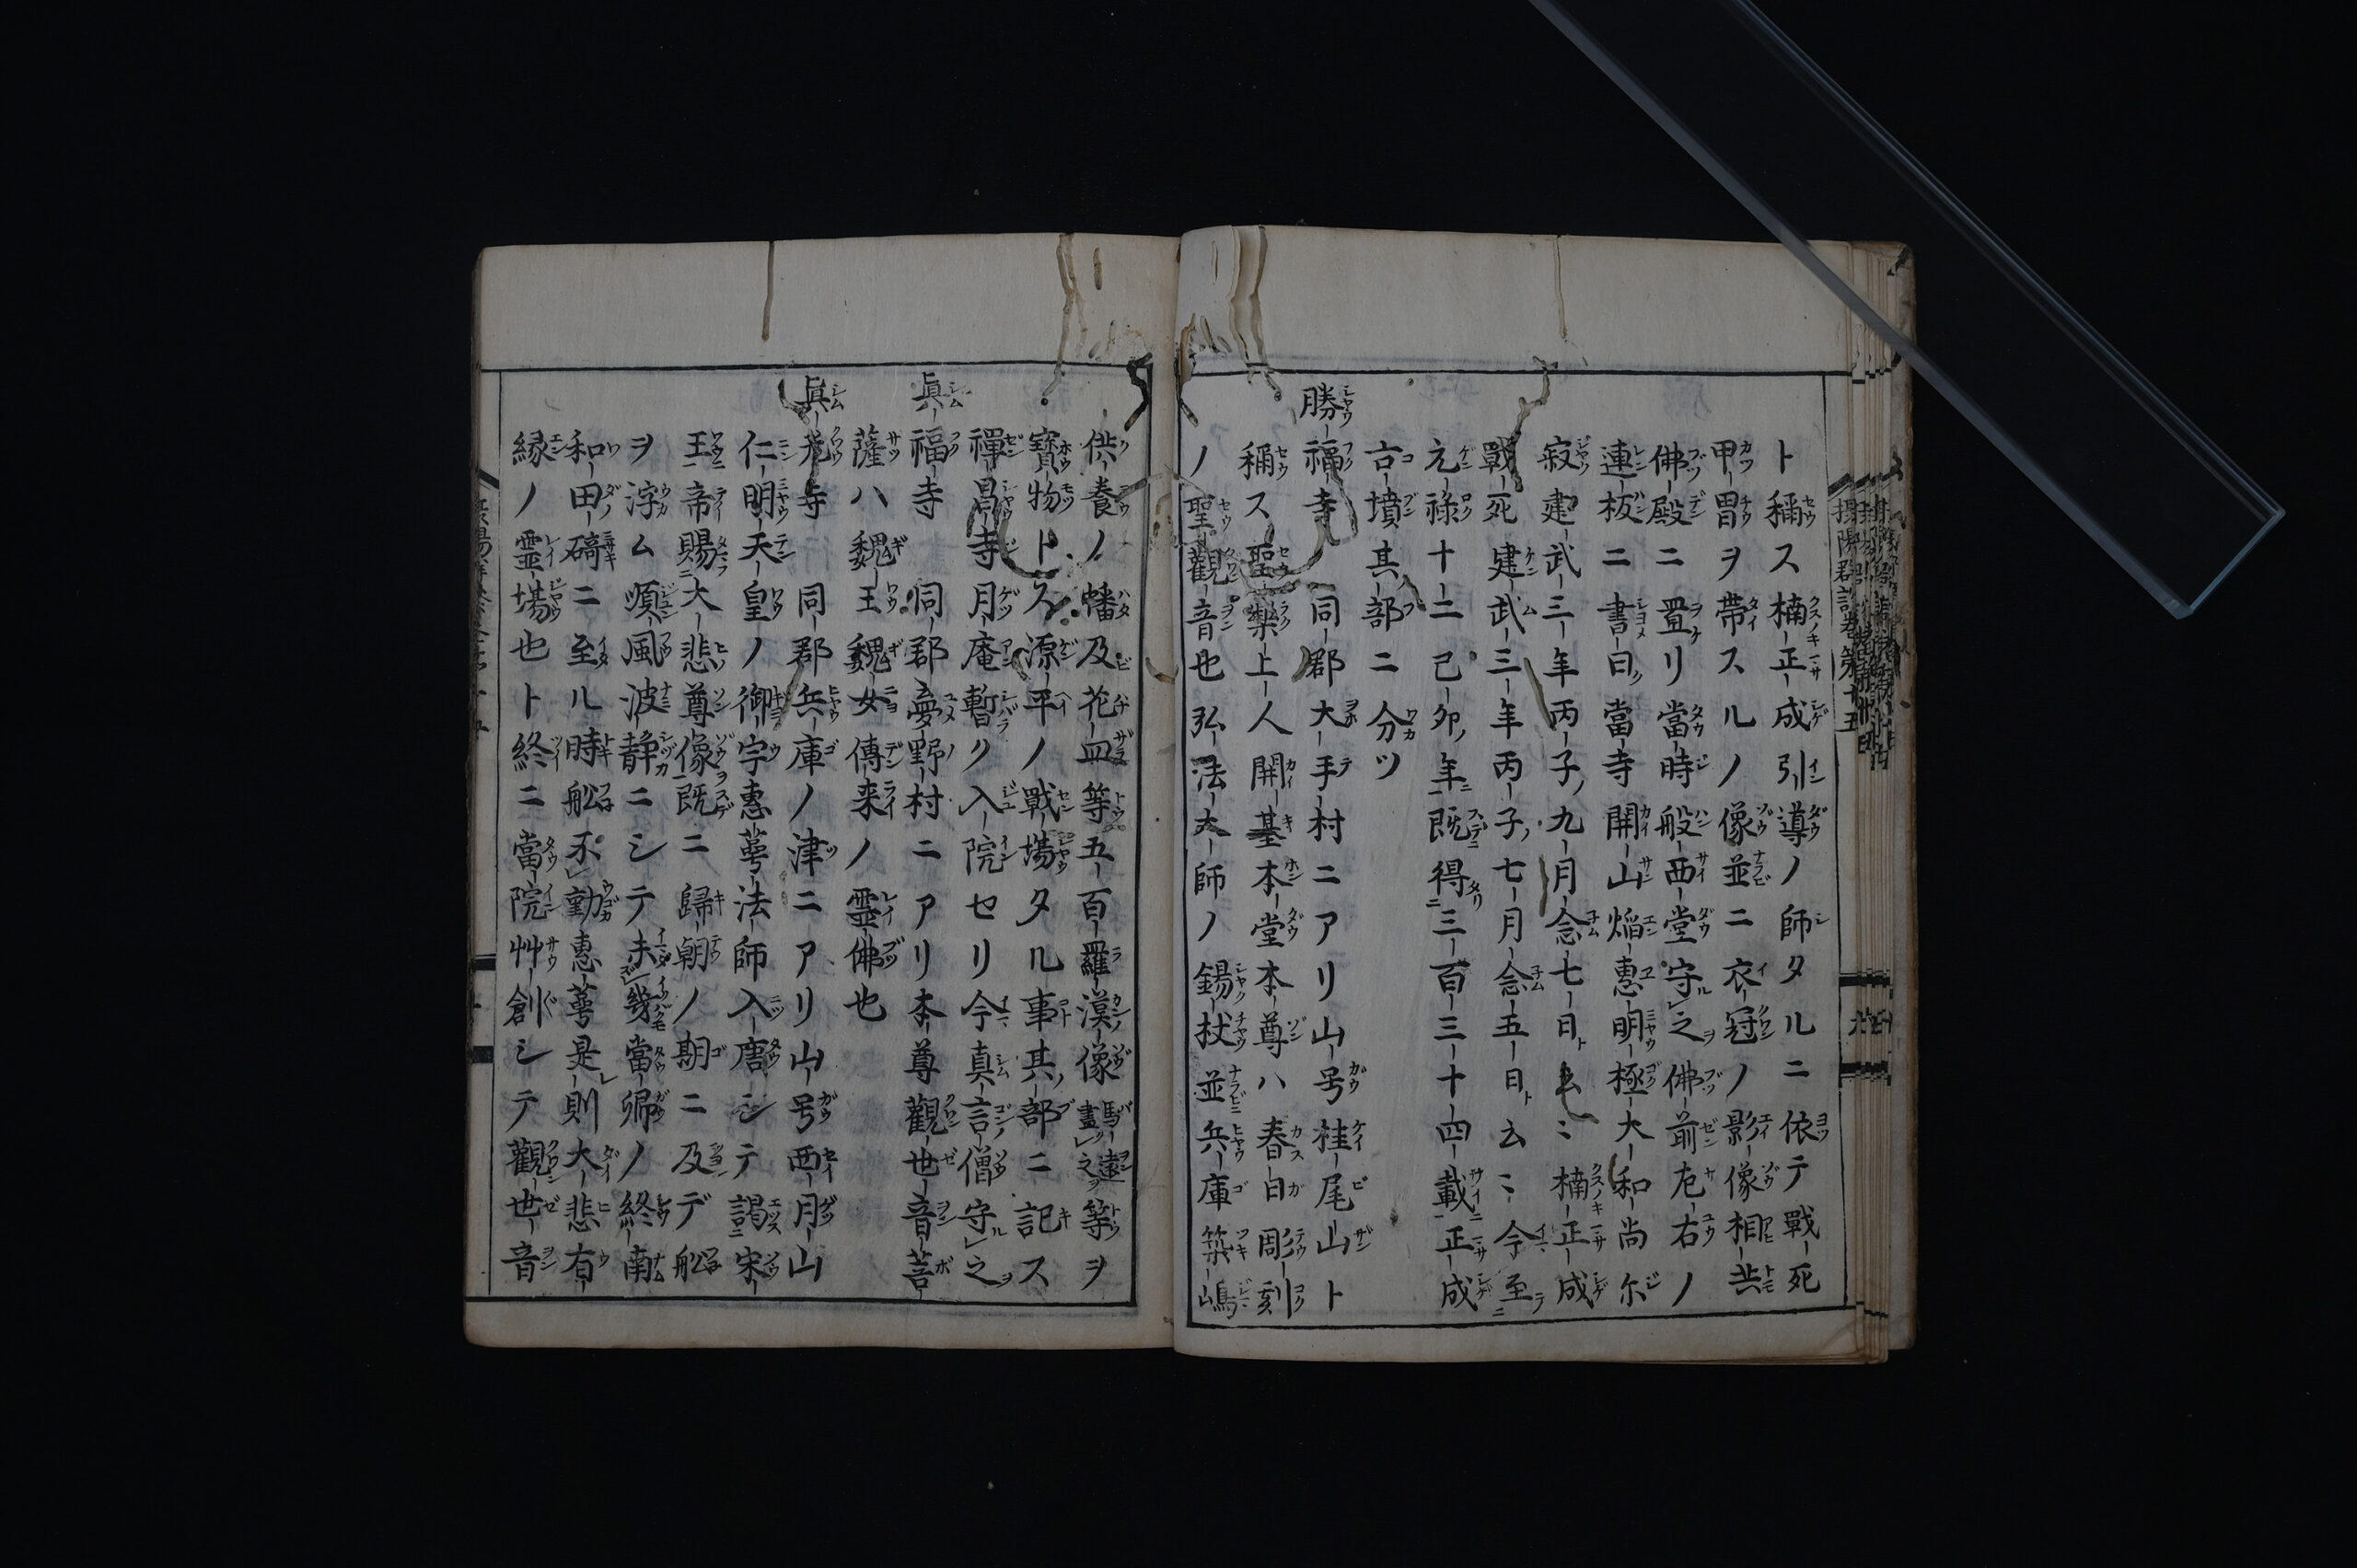 ト稱ス楠正成引導ノ師タルニ依テ戰死
甲冑ヲ帶スルノ像並ニ衣冠ノ影像相共
佛殿ニ置リ當時般西堂守之佛前左右ノ
連板ニ書曰當寺開山焔惠明極大和尚尓
寂建武三年丙子九月念七日ト云〻楠正成
戰死建武三年丙子七月念五日ト云〻今至
元禄十二己卯年既得三百三十四載正成
古墳其部ニ分ツ
勝福寺 同郡大手村ニアリ山号桂尾山ト
稱ス聖樂上人開基本堂本尊ハ春日彫刻
ノ聖觀音也弘法大師ノ錫杖並兵庫築嶋
供養ノ幡及花皿等五百羅漢像馬遠畫之等ヲ
寶物トス源平ノ戰場タル事其部ニ記ス
禪昌寺月庵暫ク入院セリ今真言僧守之
眞福寺 同郡夢野村ニアリ本尊觀世音菩
薩ハ魏王魏女傳来ノ霊佛也
眞光寺 同郡兵庫ノ津ニアリ山号西月山
仁明天皇ノ御宇惠萼法師入唐シテ謁宋
王帝賜大悲尊像既ニ歸朝ノ期ニ及デ船
ヲ浮ム順風波静ニシテ未幾當郷ノ終南
和田碕ニ至ル時船不動惠萼是則大悲有
縁ノ霊場也ト終ニ當院艸創シテ觀世音